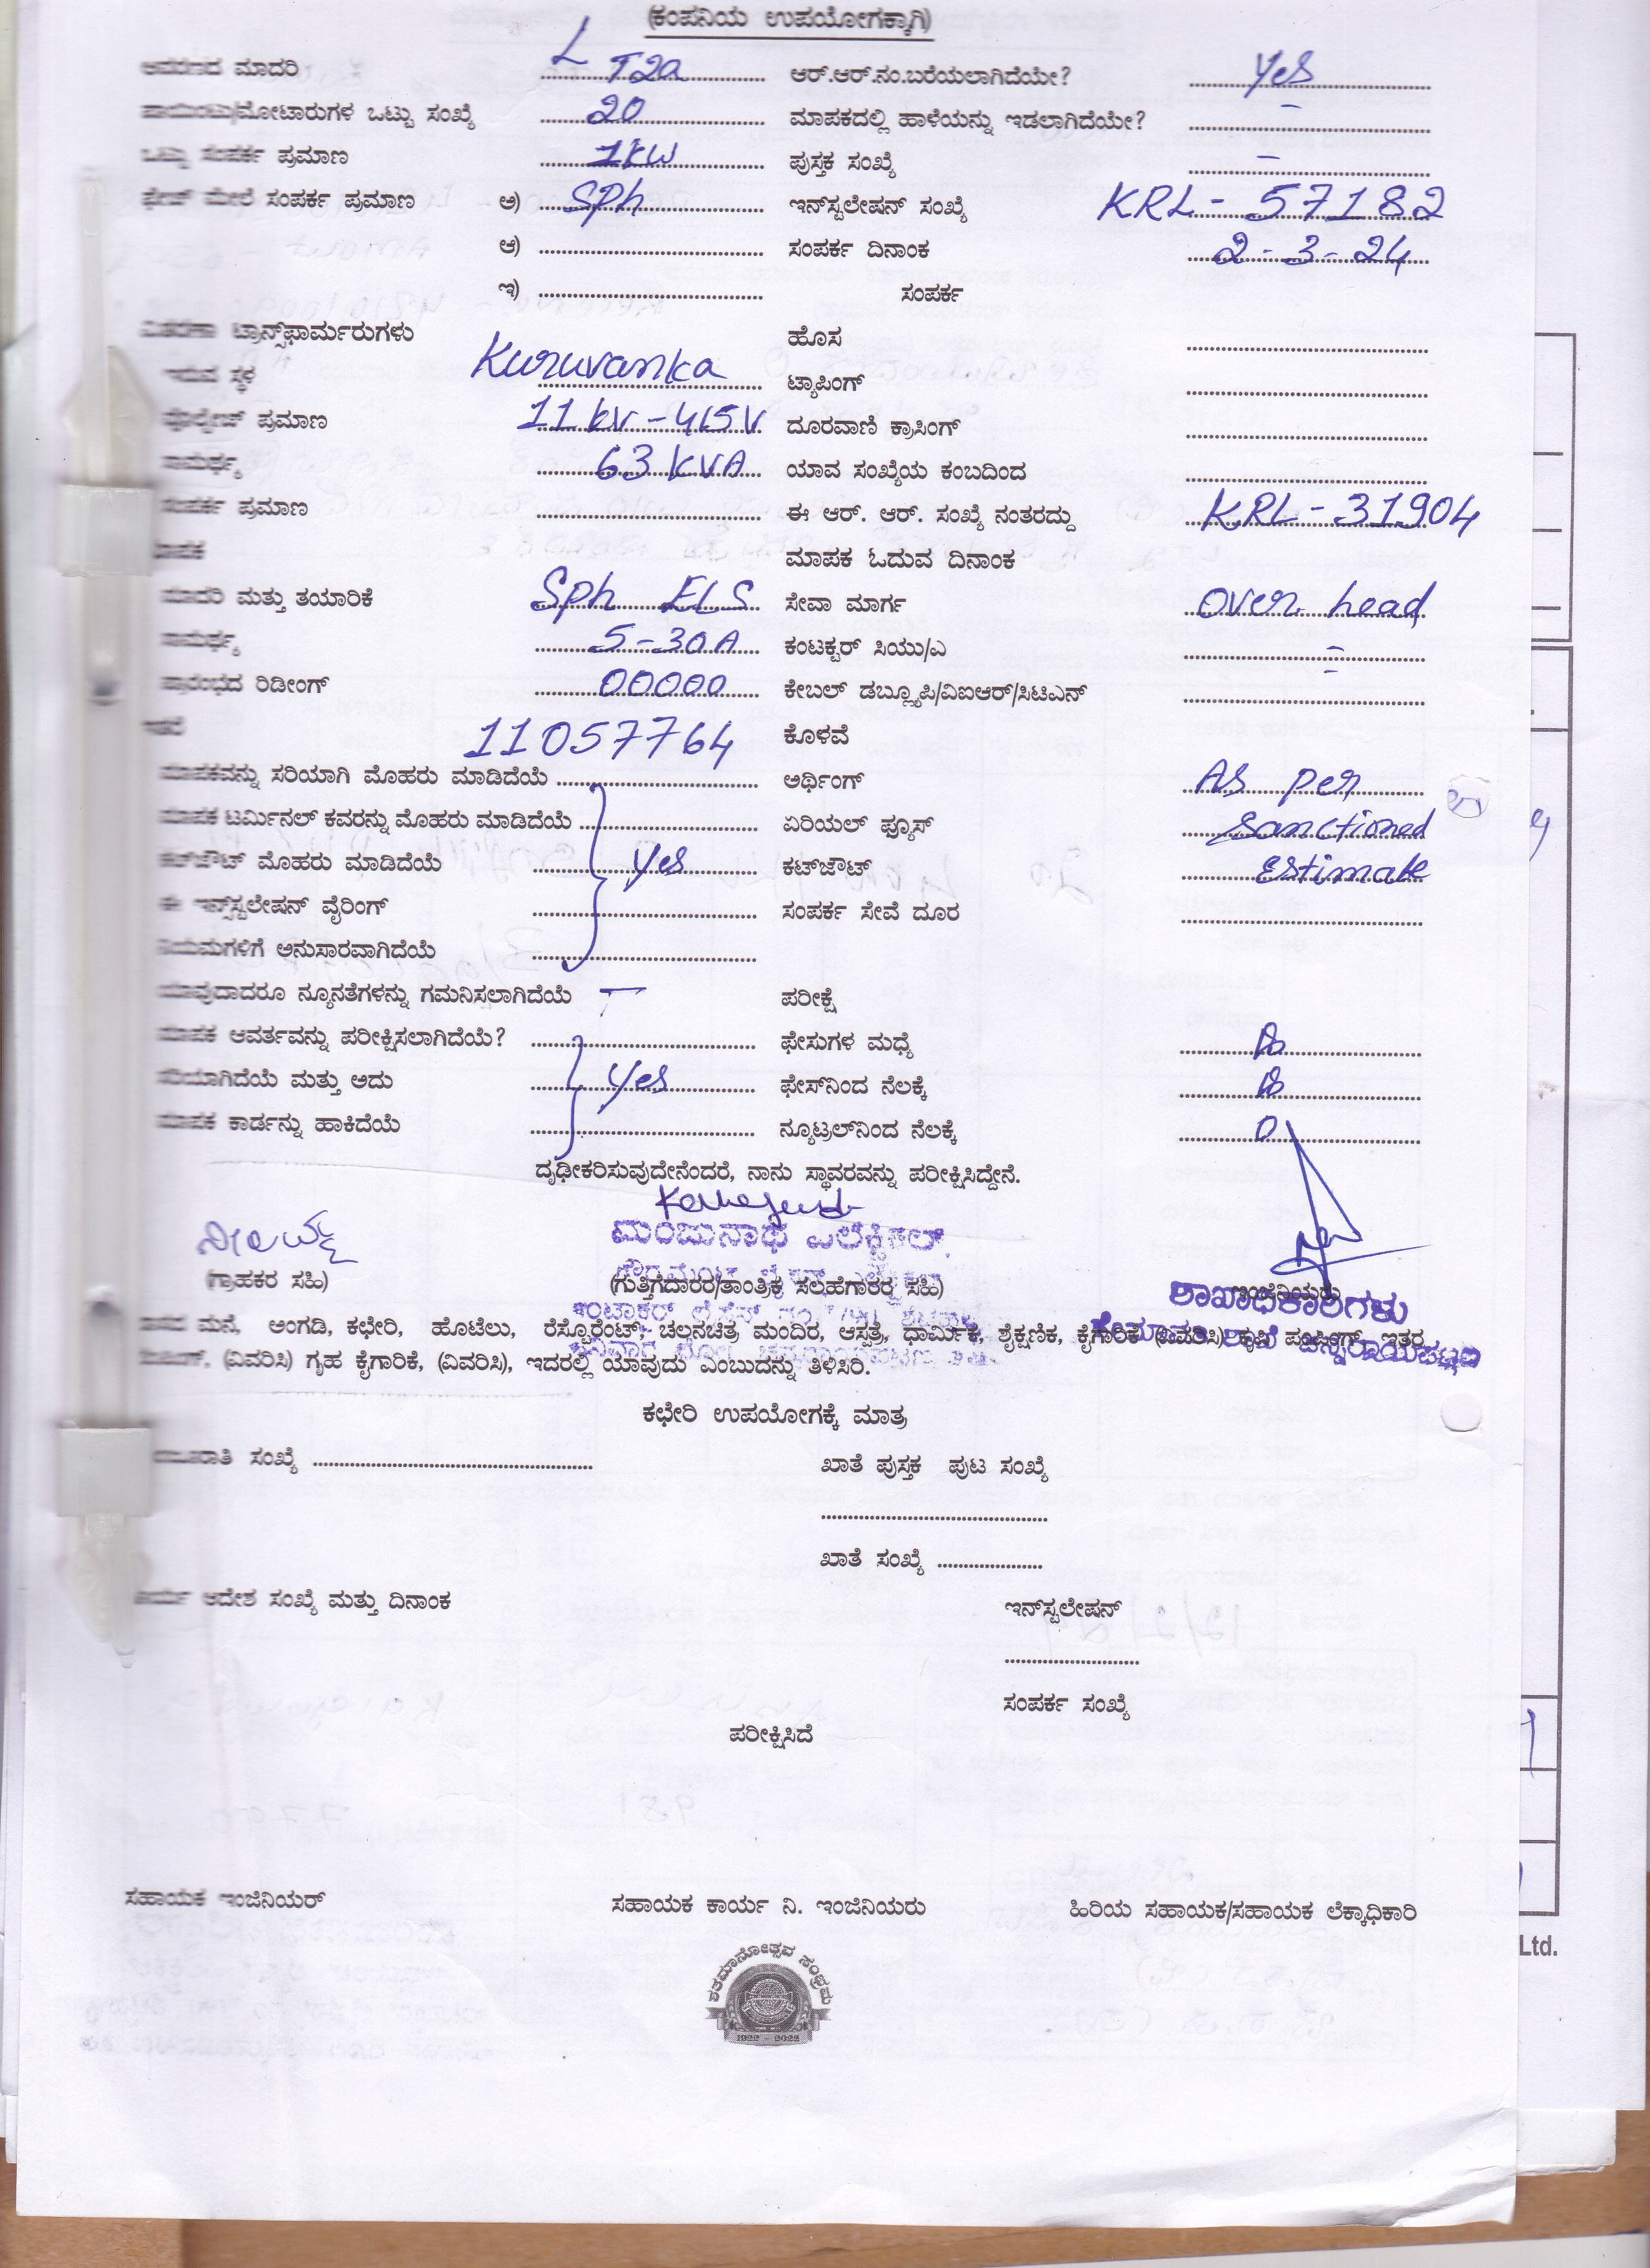 (ಕಂಪನಿಯ ಉಪಯೋಗಕ್ಕಾಗಿ)
ಮಾದರಿ L T2a ಆರ್.ಆರ್.ನಂ.ಬರೆಯಲಾಗಿದೆಯೇ? Yes
ಮೋಟಾರುಗಳ ಒಟ್ಟು ಸಂಖ್ಯೆ 20 ಮಾಪಕದಲ್ಲಿ ಹಾಳೆಯನ್ನು ಇಡಲಾಗಿದೆಯೇ? –
ಒಟ್ಟು ಸಂಪರ್ಕ ಪ್ರಮಾಣ 1KW ಪುಸ್ತಕ ಸಂಖ್ಯೆ –
ಫೇಜ್ ಮೇಲೆ ಸಂಪರ್ಕ ಪ್ರಮಾಣ ಅ) SPh ಇನ್‌ಸ್ಟಲೇಷನ್ ಸಂಖ್ಯೆ KRL - 57182
ಆ) ಸಂಪರ್ಕ ದಿನಾಂಕ 2-3-24
ಇ) ಸಂಪರ್ಕ
ವಿತರಣಾ ಟ್ರಾನ್ಸ್‌ಫಾರ್ಮರುಗಳು ಹೊಸ
ಇರುವ ಸ್ಥಳ Kuruvanka ಟ್ಯಾಪಿಂಗ್
ವೋಲ್ಟೇಜ್ ಪ್ರಮಾಣ 11 kV - 415V ದೂರವಾಣಿ ಕ್ರಾಸಿಂಗ್
ಸಾಮರ್ಥ್ಯ 63 KVA ಯಾವ ಸಂಖ್ಯೆಯ ಕಂಬದಿಂದ
ಸಂಪರ್ಕ ಪ್ರಮಾಣ ಈ ಆರ್. ಆರ್. ಸಂಖ್ಯೆ ನಂತರದ್ದು KRL - 31904
ಮಾಪಕ ಮಾಪಕ ಓದುವ ದಿನಾಂಕ
ಮಾದರಿ ಮತ್ತು ತಯಾರಿಕೆ Sph ELS ಸೇವಾ ಮಾರ್ಗ Over head
ಸಾಮರ್ಥ್ಯ 5-30A ಕಂಟಕ್ಟರ್ ಸಿಯು/ಎ
ಪ್ರಾರಂಭದ ರಿಡೀಂಗ್ 00000 ಕೇಬಲ್ ಡಬ್ಲ್ಯೂಪಿ/ವಿಐಆರ್/ಸಿಟಿಎನ್
11057764 ಕೊಳವೆ
ಮಾಪಕವನ್ನು ಸರಿಯಾಗಿ ಮೊಹರು ಮಾಡಿದೆಯೆ ಅರ್ಥಿಂಗ್ As per
ಮಾಪಕ ಟರ್ಮಿನಲ್ ಕವರನ್ನು ಮೊಹರು ಮಾಡಿದೆಯೆ ಏರಿಯಲ್ ಫ್ಯೂಸ್ Sanctioned
ಕಟ್‌ಔಟ್ ಮೊಹರು ಮಾಡಿದೆಯೆ Yes ಕಟ್‌ಔಟ್ Estimate
ಈ ಇನ್‌ಸ್ಟಲೇಷನ್ ವೈರಿಂಗ್ ಸಂಪರ್ಕ ಸೇವೆ ದೂರ
ನಿಯಮಗಳಿಗೆ ಅನುಸಾರವಾಗಿದೆಯೆ
ಯಾವುದಾದರೂ ನ್ಯೂನತೆಗಳನ್ನು ಗಮನಿಸಲಾಗಿದೆಯೆ ಪರೀಕ್ಷೆ
ಮಾಪಕ ಆವರ್ತವನ್ನು ಪರೀಕ್ಷಿಸಲಾಗಿದೆಯೆ? ಫೇಸುಗಳ ಮಧ್ಯೆ
ಸರಿಯಾಗಿದೆಯೆ ಮತ್ತು ಅದು Yes ಫೇಸ್‌ನಿಂದ ನೆಲಕ್ಕೆ
ಮಾಪಕ ಕಾರ್ಡನ್ನು ಹಾಕಿದೆಯೆ ನ್ಯೂಟ್ರಲ್‌ನಿಂದ ನೆಲಕ್ಕೆ 0
ದೃಢೀಕರಿಸುವುದೇನೆಂದರೆ, ನಾನು ಸ್ಥಾವರವನ್ನು ಪರೀಕ್ಷಿಸಿದ್ದೇನೆ.
ಮಂಜುನಾಥ ಎಲೆಕ್ಟ್ರಿಕಲ್
(ಗ್ರಾಹಕರ ಸಹಿ) (ಗುತ್ತಿಗೆದಾರರ/ತಾಂತ್ರಿಕ ಸಲಹೆಗಾರರ ಸಹಿ) ಇಂಜಿನಿಯರು
ಶಾಖಾಧಿಕಾರಿಗಳು
ವಾಸದ ಮನೆ, ಅಂಗಡಿ, ಕಛೇರಿ, ಹೊಟೆಲು, ರೆಸ್ಟೊರೆಂಟ್, ಚಲನಚಿತ್ರ ಮಂದಿರ, ಆಸ್ಪತ್ರೆ, ಧಾರ್ಮಿಕ, ಶೈಕ್ಷಣಿಕ, ಕೈಗಾರಿಕೆ (ವಿವರಿಸಿ) ಕೃಷಿ ಪಂಪಿಂಗ್, ಇತರ
(ವಿವರಿಸಿ) ಗೃಹ ಕೈಗಾರಿಕೆ, (ವಿವರಿಸಿ), ಇದರಲ್ಲಿ ಯಾವುದು ಎಂಬುದನ್ನು ತಿಳಿಸಿರಿ.
ಕಛೇರಿ ಉಪಯೋಗಕ್ಕೆ ಮಾತ್ರ
ಸಂಖ್ಯೆ ಖಾತೆ ಪುಸ್ತಕ ಪುಟ ಸಂಖ್ಯೆ
ಖಾತೆ ಸಂಖ್ಯೆ
ಕಾರ್ಯ ಆದೇಶ ಸಂಖ್ಯೆ ಮತ್ತು ದಿನಾಂಕ ಇನ್‌ಸ್ಟಲೇಷನ್
ಸಂಪರ್ಕ ಸಂಖ್ಯೆ
ಪರೀಕ್ಷಿಸಿದೆ
ಸಹಾಯಕ ಇಂಜಿನಿಯರ್ ಸಹಾಯಕ ಕಾರ್ಯ ನಿ. ಇಂಜಿನಿಯರು ಹಿರಿಯ ಸಹಾಯಕ/ಸಹಾಯಕ ಲೆಕ್ಕಾಧಿಕಾರಿ
Ltd.
ಶತಮಾನೋತ್ಸವ ಸಂಭ್ರಮ
1922 - 2022